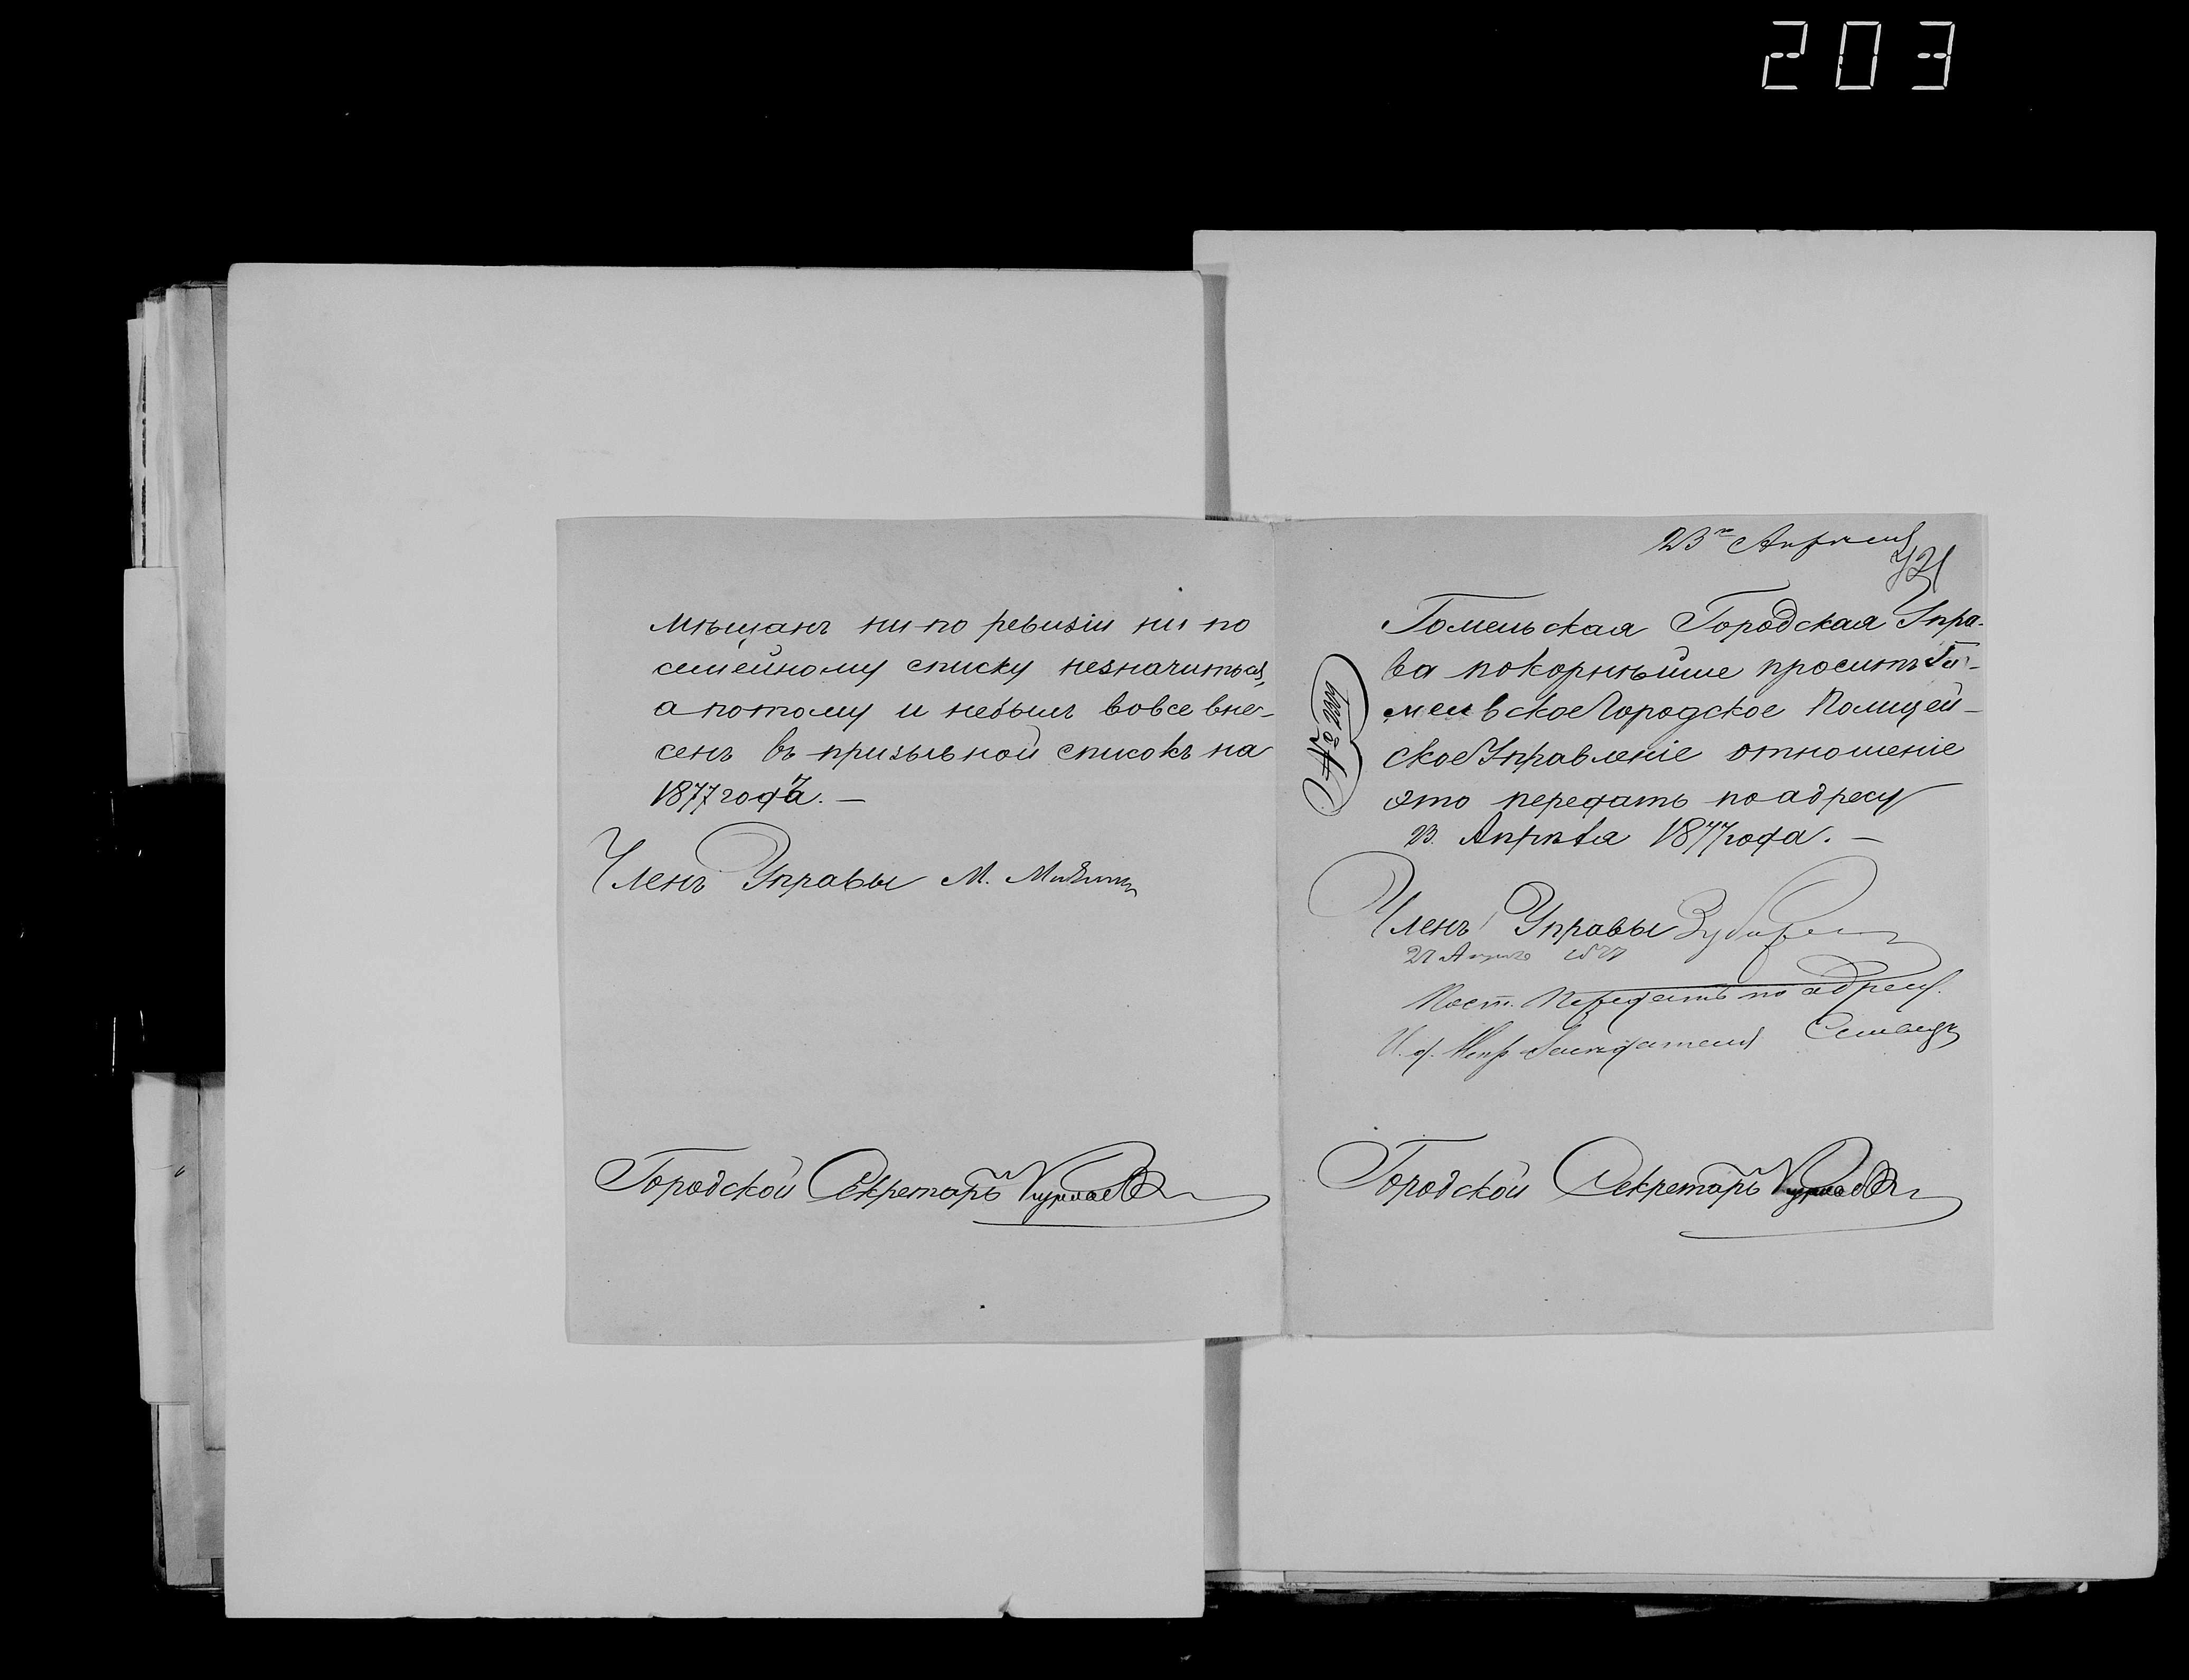 203
мѣщанъ ни по ревизіи ни по
семейному списку незначиться,
а потому и небылъ вовсе вне-
сенъ въ призывной списокъ на
1877 года. —
Членъ Управы М.
Городской Секретарь
23го Апрѣля
Гомельская Городская Упра-
ва покорнѣйше проситъ Го-
мельское Городское Полицей-
ское Управленіе отношеніе
это передать по адресу
23 Апрѣля 1877 года. —
№
Членъ Управы
27 Апрѣля 1877
Пост. Передать по адресу.
И. д.
Городской Секретарь